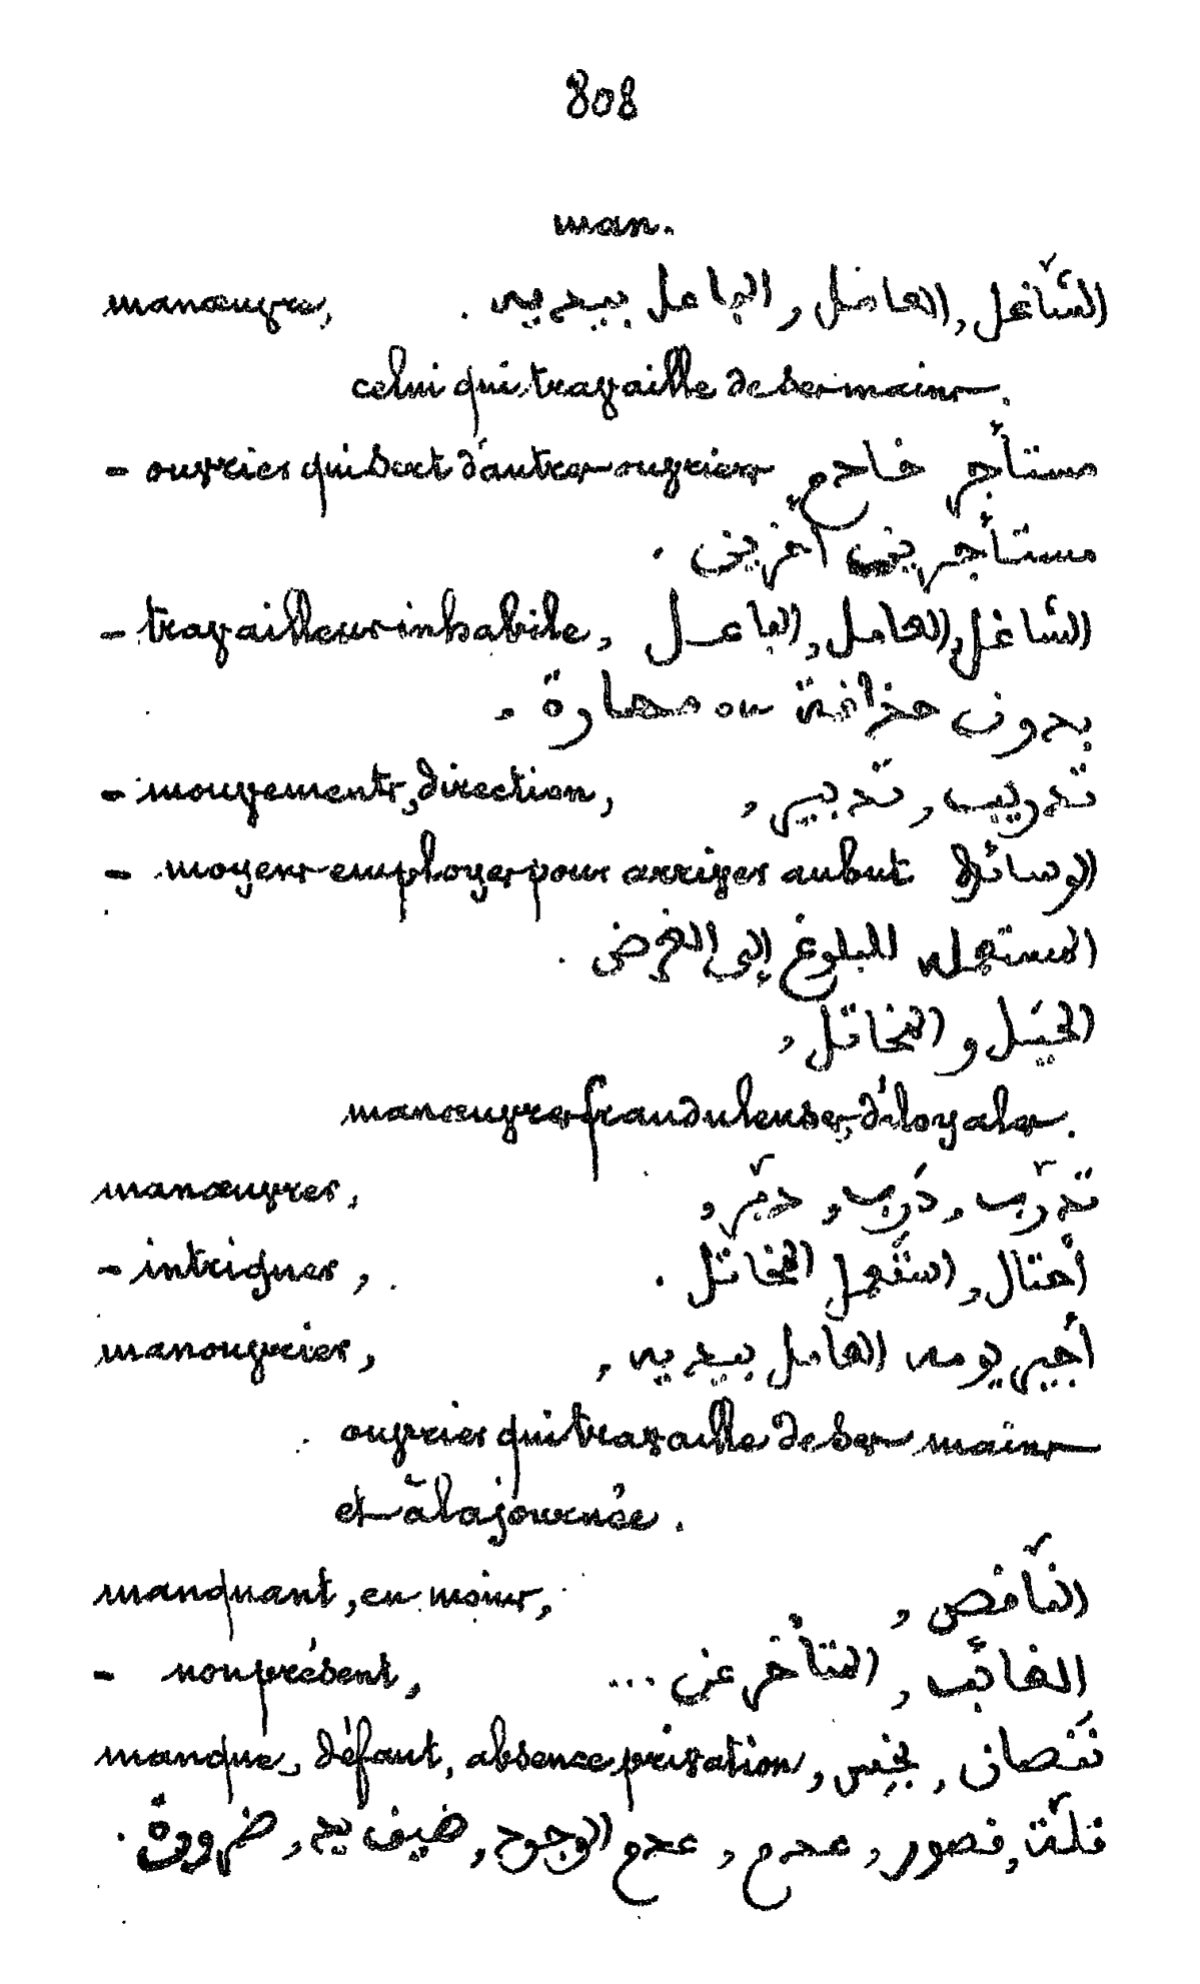 808
man.
manœuvre, الشّاغل, العامل, الباعل بيديه.
celui qui travaille de ses mains.
- ouvrier qui sert d'autres ouvriers مستأجر خادم
مستأجرين أخرين.
- travailleur inhabile, الشاغل, العامل, الباعل
بدون حذاقة ou مهارة.
- mouvements, direction, تدريب, تدبير,
- moyens employés pour arriver au but الوسائل
المستعمله للبلوغ إلى الغرض.
الحيَل و المخاتل,
manœuvres frauduleuses, déloyales.
manœuvrer, تدرّب, دَرب, دبّر,
- intriguer, أحتال, استَعمل المخاتل.
manouvrier, أجير يومه العامل بيديه,
ouvrier qui travaille de ses mains
et à la journée.
manquant, en moins, النّاقص,
- non présent, الغائب, المتأخر عن ...
manque, défaut, absence, privation, نَقصان, بخس,
قلّة, قصور, عدم, عدم الوجود, ضيف يد, ضرورة.